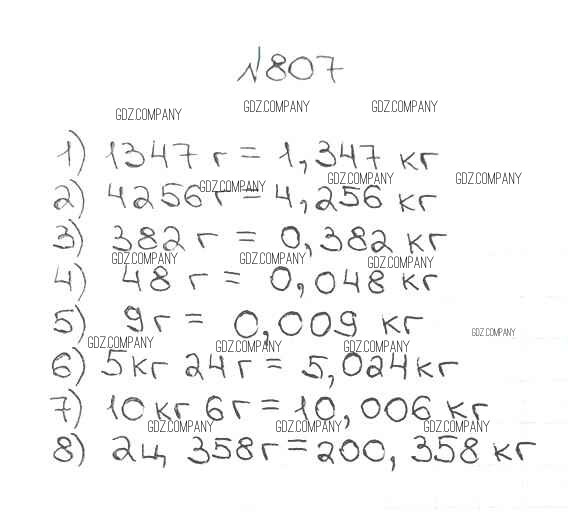 №807
GDZ.COMPANY GDZ.COMPANY GDZ.COMPANY
1) 1347 г = 1,347 кг
GDZ.COMPANY GDZ.COMPANY GDZ.COMPANY
2) 4256 г = 4,256 кг
3) 382 г = 0,382 кг
GDZ.COMPANY GDZ.COMPANY GDZ.COMPANY
4) 48 г = 0,048 кг
5) 9 г = 0,009 кг
GDZ.COMPANY
GDZ.COMPANY GDZ.COMPANY GDZ.COMPANY
6) 5 кг 24 г = 5,024 кг
7) 10 кг 6 г = 10,006 кг
GDZ.COMPANY GDZ.COMPANY GDZ.COMPANY
8) 2 ц 358 г = 200,358 кг